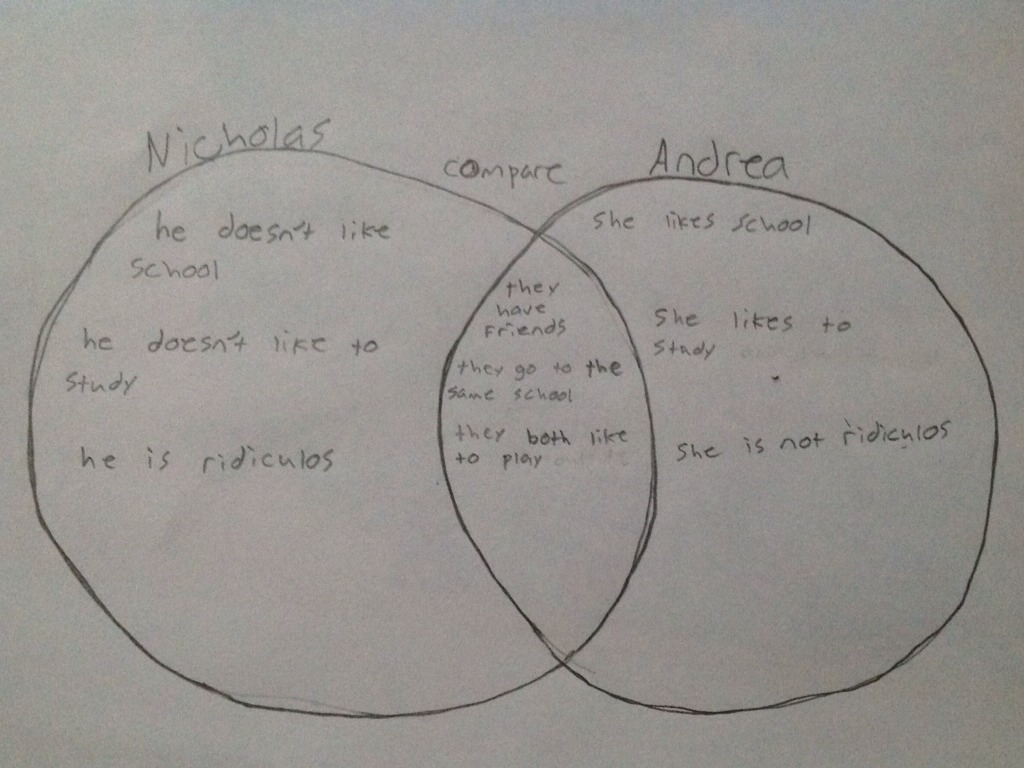 Nicholas
compare
Andrea
he doesn't like
school
he doesn't like to
study
he is ridiculos
they
have
friends
they go to the
same school
they both like
to play
She likes school
She likes to
study
She is not ridiculos